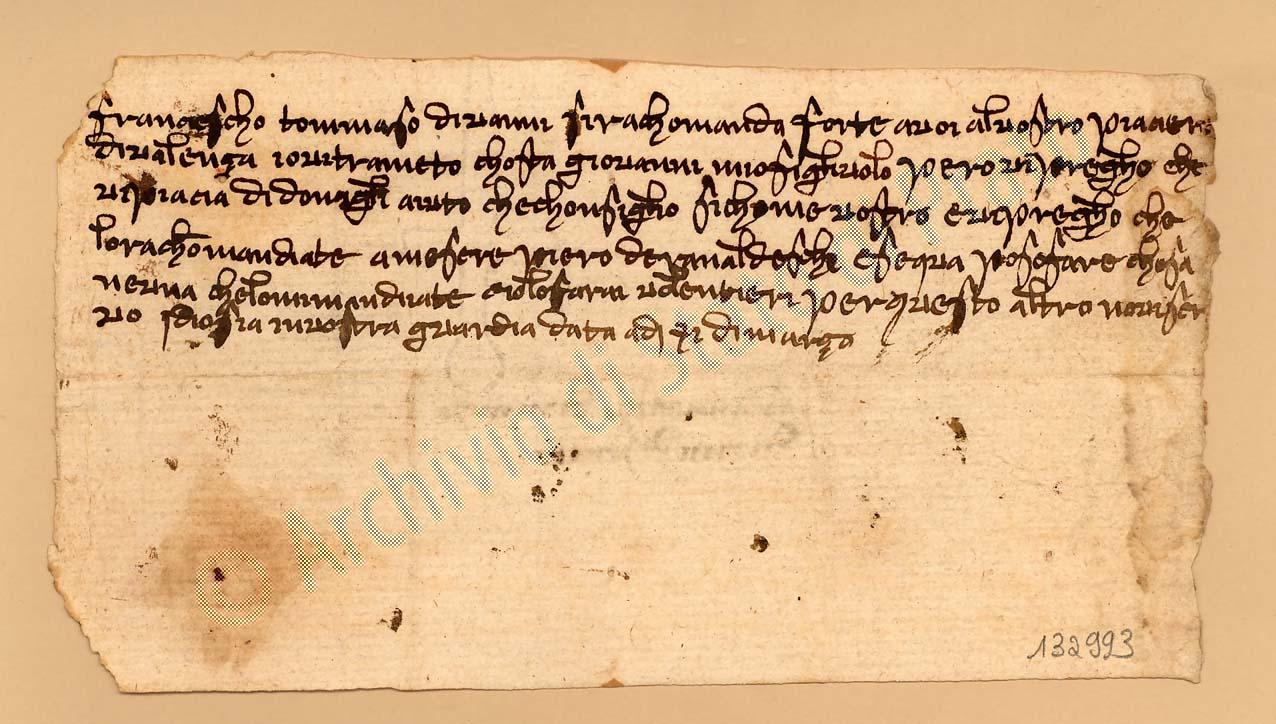 francescho tommaso divanni si rachomanda forte avoi alvostro piacere
divalenza iovitrameto chosta giovanni miofighivolo pero viprregho che
vipiacia didonargli aiuto chechonsiglio sichome vostro evipregho che
lorachomandiate amesere piero de ranaldeschi esequa posofare chosa
neuna chelommandiate iolofarai volentieri perquesto altro noviscr
vo idiosia invostra guardia data adi xi dimarzo
© Archivio di Stato di
132993